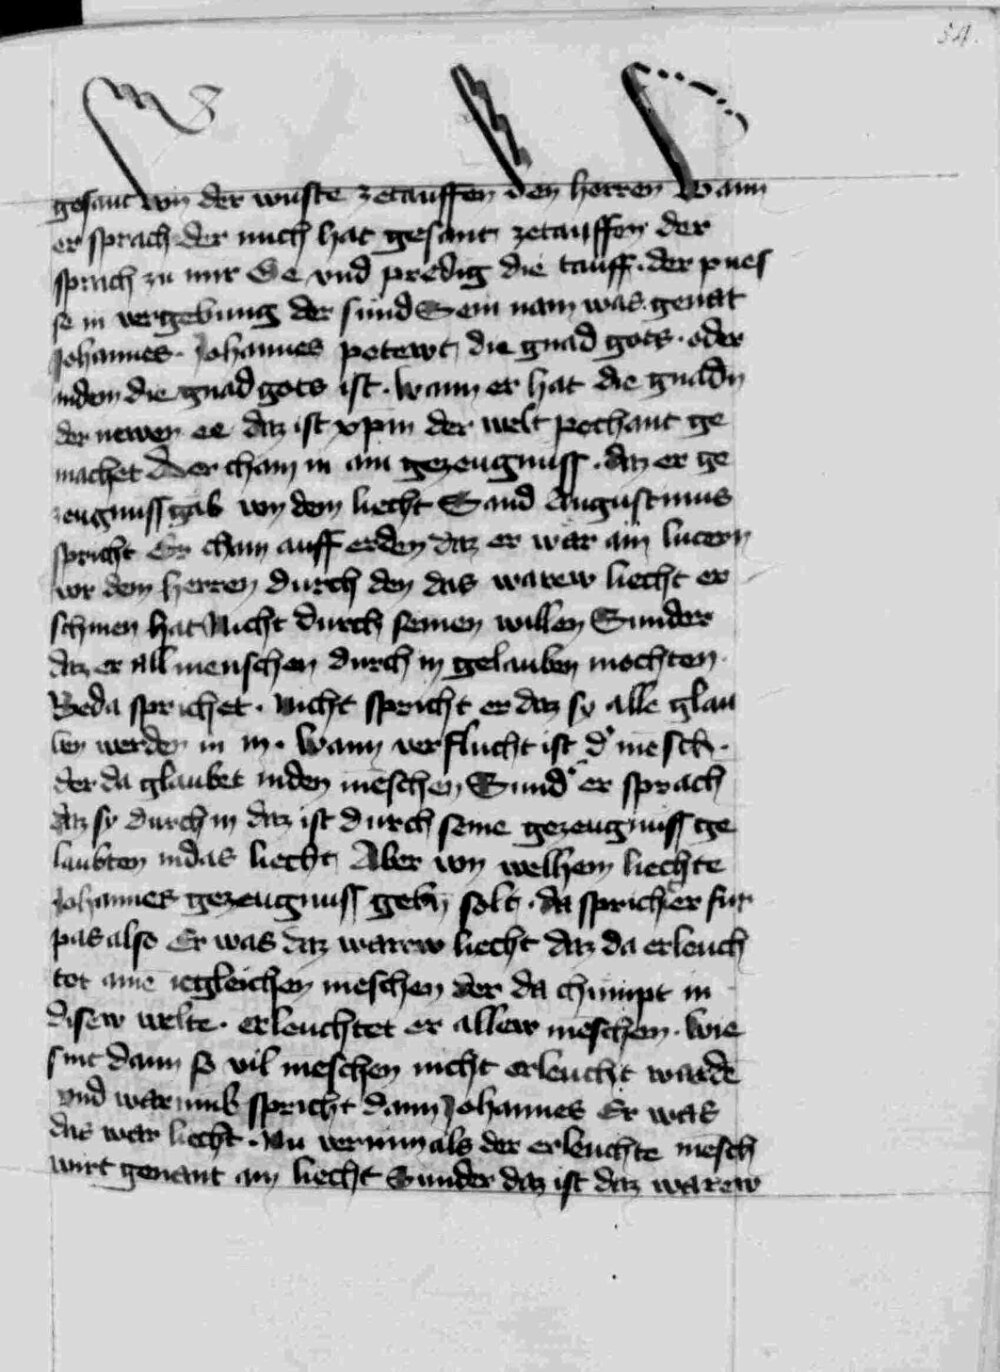 54.
gesant von der wuste zetauffen den herren Wann
er sprach der mich hat gesant zetauffen der
sprach zu mir Ge vnd predig die tauff · der pues
se in vergebung der sund Sein nam was genāt
Johannes · Johannes petewt die gnad gots · oder
indem die gnad gots ist · wann er hat die gnadn
der newen ee daz ist xp̄m der welt pechant ge
machet Der cham in ain gezeugnuss · daz er ge
zeugnuss gab von dem liecht Sand Augustinus
spricht Er cham auff erden daz er wār ain lucern
vor dem herren durch den das warew liecht er
schinen hat Nicht durch seinen willen Sunder
daz er all menschen durch in gelauben mochten ·
Beda sprichet · Nicht spricht er daz sy alle glau
ben werden in in · Wann verflucht ist d' mēsch ·
der da glaubet inden mēschen Sund' er sprach
daz sy durch in daz ist durch seine gezeugnuss ge
laubten indas liecht Aber von welhem liechte
Johannes gezeugnuss gebn̄ solt · da spricht er fur
pas also Er was daz warew liecht daz da erleuch
tet ainē iegleichen mēschen der da chumpt in
disew welte · erleuchtet er allew mēschen · wie
sint dann so vil mēschen nicht erleucht wardē
vnd warumb spricht dann Johannes Er was
das war liecht · Nu vernim als der erleuchte mēsch
wirt genant ain liecht Sunder daz ist daz warew